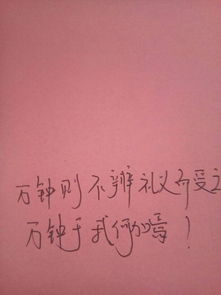 万钟则不辨礼义而受之
万钟于我何加焉！